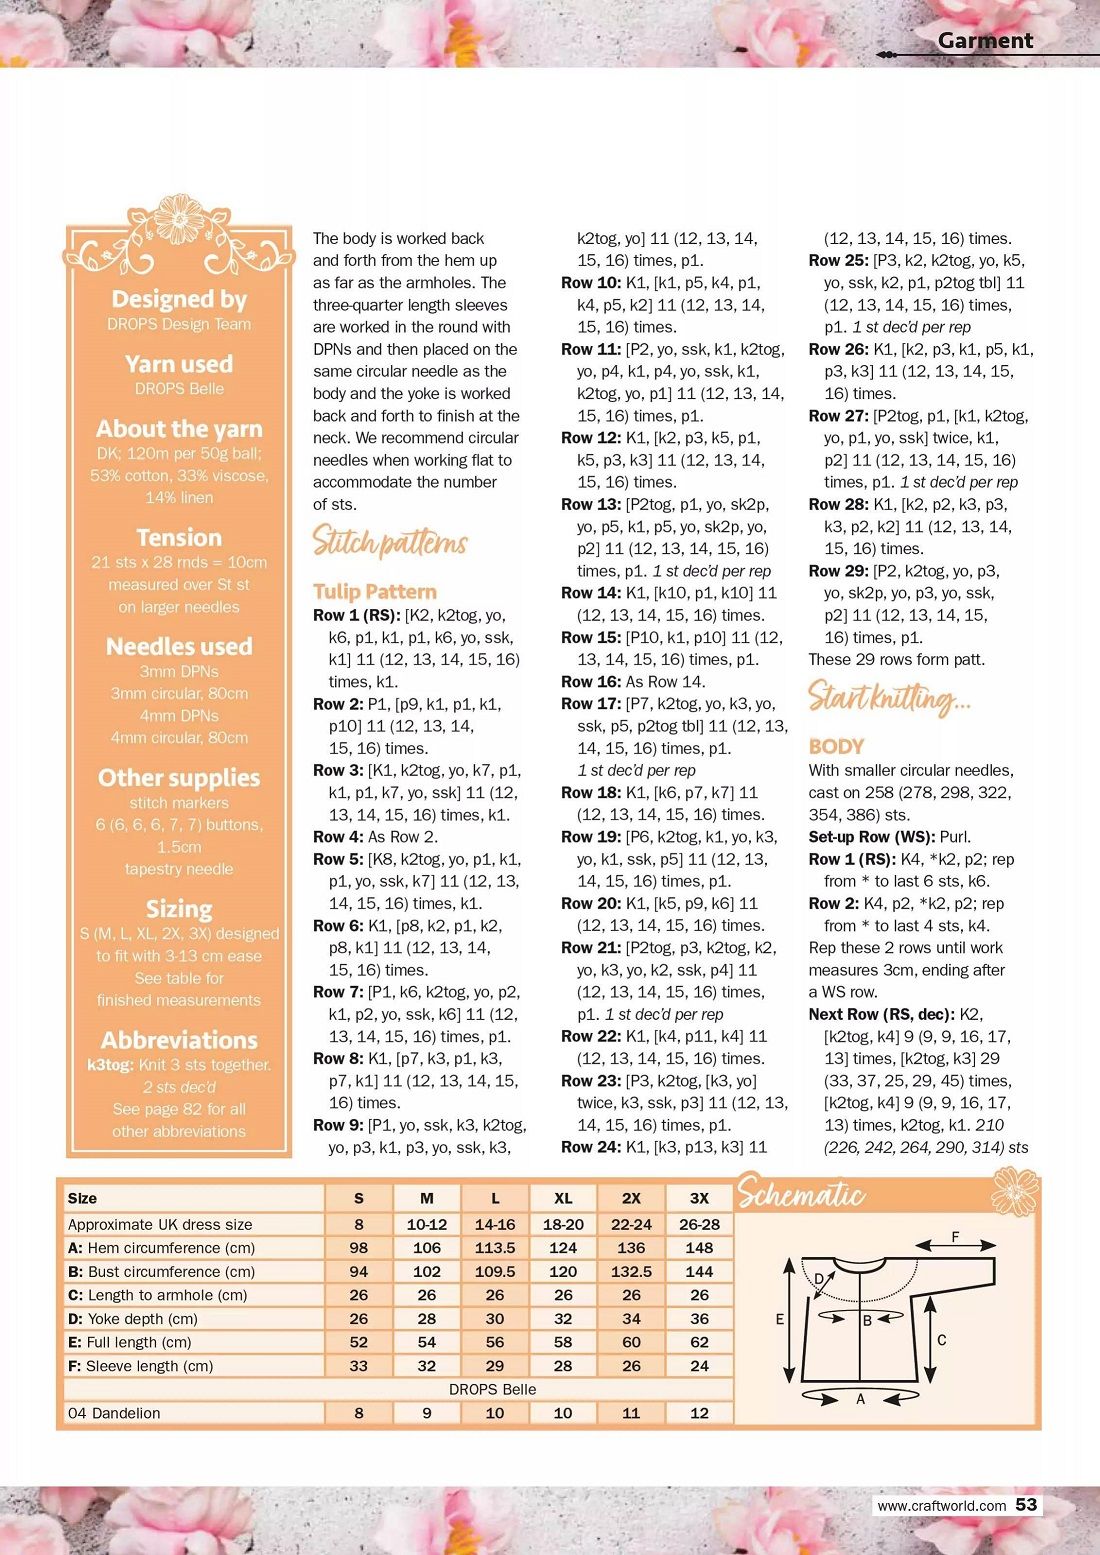 Garment
Designed by
DROPS Design Team
Yarn used
DROPS Belle
About the yarn
DK; 120m per 50g ball;
53% cotton, 33% viscose,
14% linen
Tension
21 sts x 28 rnds = 10cm
measured over St st
on larger needles
Needles used
3mm DPNs
3mm circular, 80cm
4mm DPNs
4mm circular, 80cm
Other supplies
stitch markers
6 (6, 6, 6, 7, 7) buttons,
1.5cm
tapestry needle
Sizing
S (M, L, XL, 2X, 3X) designed
to fit with 3-13 cm ease
See table for
finished measurements
Abbreviations
k3tog: Knit 3 sts together.
2 sts dec'd
See page 82 for all
other abbreviations
The body is worked back
and forth from the hem up
as far as the armholes. The
three-quarter length sleeves
are worked in the round with
DPNs and then placed on the
same circular needle as the
body and the yoke is worked
back and forth to finish at the
neck. We recommend circular
needles when working flat to
accommodate the number
of sts.
Stitch patterns
Tulip Pattern
Row 1 (RS): [K2, k2tog, yo,
k6, p1, k1, p1, k6, yo, ssk,
k1] 11 (12, 13, 14, 15, 16)
times, k1.
Row 2: P1, [p9, k1, p1, k1,
p10] 11 (12, 13, 14,
15, 16) times.
Row 3: [K1, k2tog, yo, k7, p1,
k1, p1, k7, yo, ssk] 11 (12,
13, 14, 15, 16) times, k1.
Row 4: As Row 2.
Row 5: [K8, k2tog, yo, p1, k1,
p1, yo, ssk, k7] 11 (12, 13,
14, 15, 16) times, k1.
Row 6: K1, [p8, k2, p1, k2,
p8, k1] 11 (12, 13, 14,
15, 16) times.
Row 7: [P1, k6, k2tog, yo, p2,
k1, p2, yo, ssk, k6] 11 (12,
13, 14, 15, 16) times, p1.
Row 8: K1, [p7, k3, p1, k3,
p7, k1] 11 (12, 13, 14, 15,
16) times.
Row 9: [P1, yo, ssk, k3, k2tog,
yo, p3, k1, p3, yo, ssk, k3,
k2tog, yo] 11 (12, 13, 14,
15, 16) times, p1.
Row 10: K1, [k1, p5, k4, p1,
k4, p5, k2] 11 (12, 13, 14,
15, 16) times.
Row 11: [P2, yo, ssk, k1, k2tog,
yo, p4, k1, p4, yo, ssk, k1,
k2tog, yo, p1] 11 (12, 13, 14,
15, 16) times, p1.
Row 12: K1, [k2, p3, k5, p1,
k5, p3, k3] 11 (12, 13, 14,
15, 16) times.
Row 13: [P2tog, p1, yo, sk2p,
yo, p5, k1, p5, yo, sk2p, yo,
p2] 11 (12, 13, 14, 15, 16)
times, p1. 1 st dec'd per rep
Row 14: K1, [k10, p1, k10] 11
(12, 13, 14, 15, 16) times.
Row 15: [P10, k1, p10] 11 (12,
13, 14, 15, 16) times, p1.
Row 16: As Row 14.
Row 17: [P7, k2tog, yo, k3, yo,
ssk, p5, p2tog tbl] 11 (12, 13,
14, 15, 16) times, p1.
1 st dec'd per rep
Row 18: K1, [k6, p7, k7] 11
(12, 13, 14, 15, 16) times.
Row 19: [P6, k2tog, k1, yo, k3,
yo, k1, ssk, p5] 11 (12, 13,
14, 15, 16) times, p1.
Row 20: K1, [k5, p9, k6] 11
(12, 13, 14, 15, 16) times.
Row 21: [P2tog, p3, k2tog, k2,
yo, k3, yo, k2, ssk, p4] 11
(12, 13, 14, 15, 16) times,
p1. 1 st dec'd per rep
Row 22: K1, [k4, p11, k4] 11
(12, 13, 14, 15, 16) times.
Row 23: [P3, k2tog, [k3, yo]
twice, k3, ssk, p3] 11 (12, 13,
14, 15, 16) times, p1.
Row 24: K1, [k3, p13, k3] 11
(12, 13, 14, 15, 16) times.
Row 25: [P3, k2, k2tog, yo, k5,
yo, ssk, k2, p1, p2tog tbl] 11
(12, 13, 14, 15, 16) times,
p1. 1 st dec'd per rep
Row 26: K1, [k2, p3, k1, p5, k1,
p3, k3] 11 (12, 13, 14, 15,
16) times.
Row 27: [P2tog, p1, [k1, k2tog,
yo, p1, yo, ssk] twice, k1,
p2] 11 (12, 13, 14, 15, 16)
times, p1. 1 st dec'd per rep
Row 28: K1, [k2, p2, k3, p3,
k3, p2, k2] 11 (12, 13, 14,
15, 16) times.
Row 29: [P2, k2tog, yo, p3,
yo, sk2p, yo, p3, yo, ssk,
p2] 11 (12, 13, 14, 15,
16) times, p1.
These 29 rows form patt.
Start knitting...
BODY
With smaller circular needles,
cast on 258 (278, 298, 322,
354, 386) sts.
Set-up Row (WS): Purl.
Row 1 (RS): K4, *k2, p2; rep
from * to last 6 sts, k6.
Row 2: K4, p2, *k2, p2; rep
from * to last 4 sts, k4.
Rep these 2 rows until work
measures 3cm, ending after
a WS row.
Next Row (RS, dec): K2,
[k2tog, k4] 9 (9, 9, 16, 17,
13] times, [k2tog, k3] 29
(33, 37, 25, 29, 45) times,
[k2tog, k4] 9 (9, 9, 16, 17,
13) times, k2tog, k1. 210
(226, 242, 264, 290, 314) sts
Size S M L XL 2X 3X
Approximate UK dress size 8 10-12 14-16 18-20 22-24 26-28
A: Hem circumference (cm) 98 106 113.5 124 136 148
B: Bust circumference (cm) 94 102 109.5 120 132.5 144
C: Length to armhole (cm) 26 26 26 26 26 26
D: Yoke depth (cm) 26 28 30 32 34 36
E: Full length (cm) 52 54 56 58 60 62
F: Sleeve length (cm) 33 32 29 28 26 24
DROPS Belle
04 Dandelion 8 9 10 10 11 12
Schematic
F
D
E
B
C
A
www.craftworld.com 53